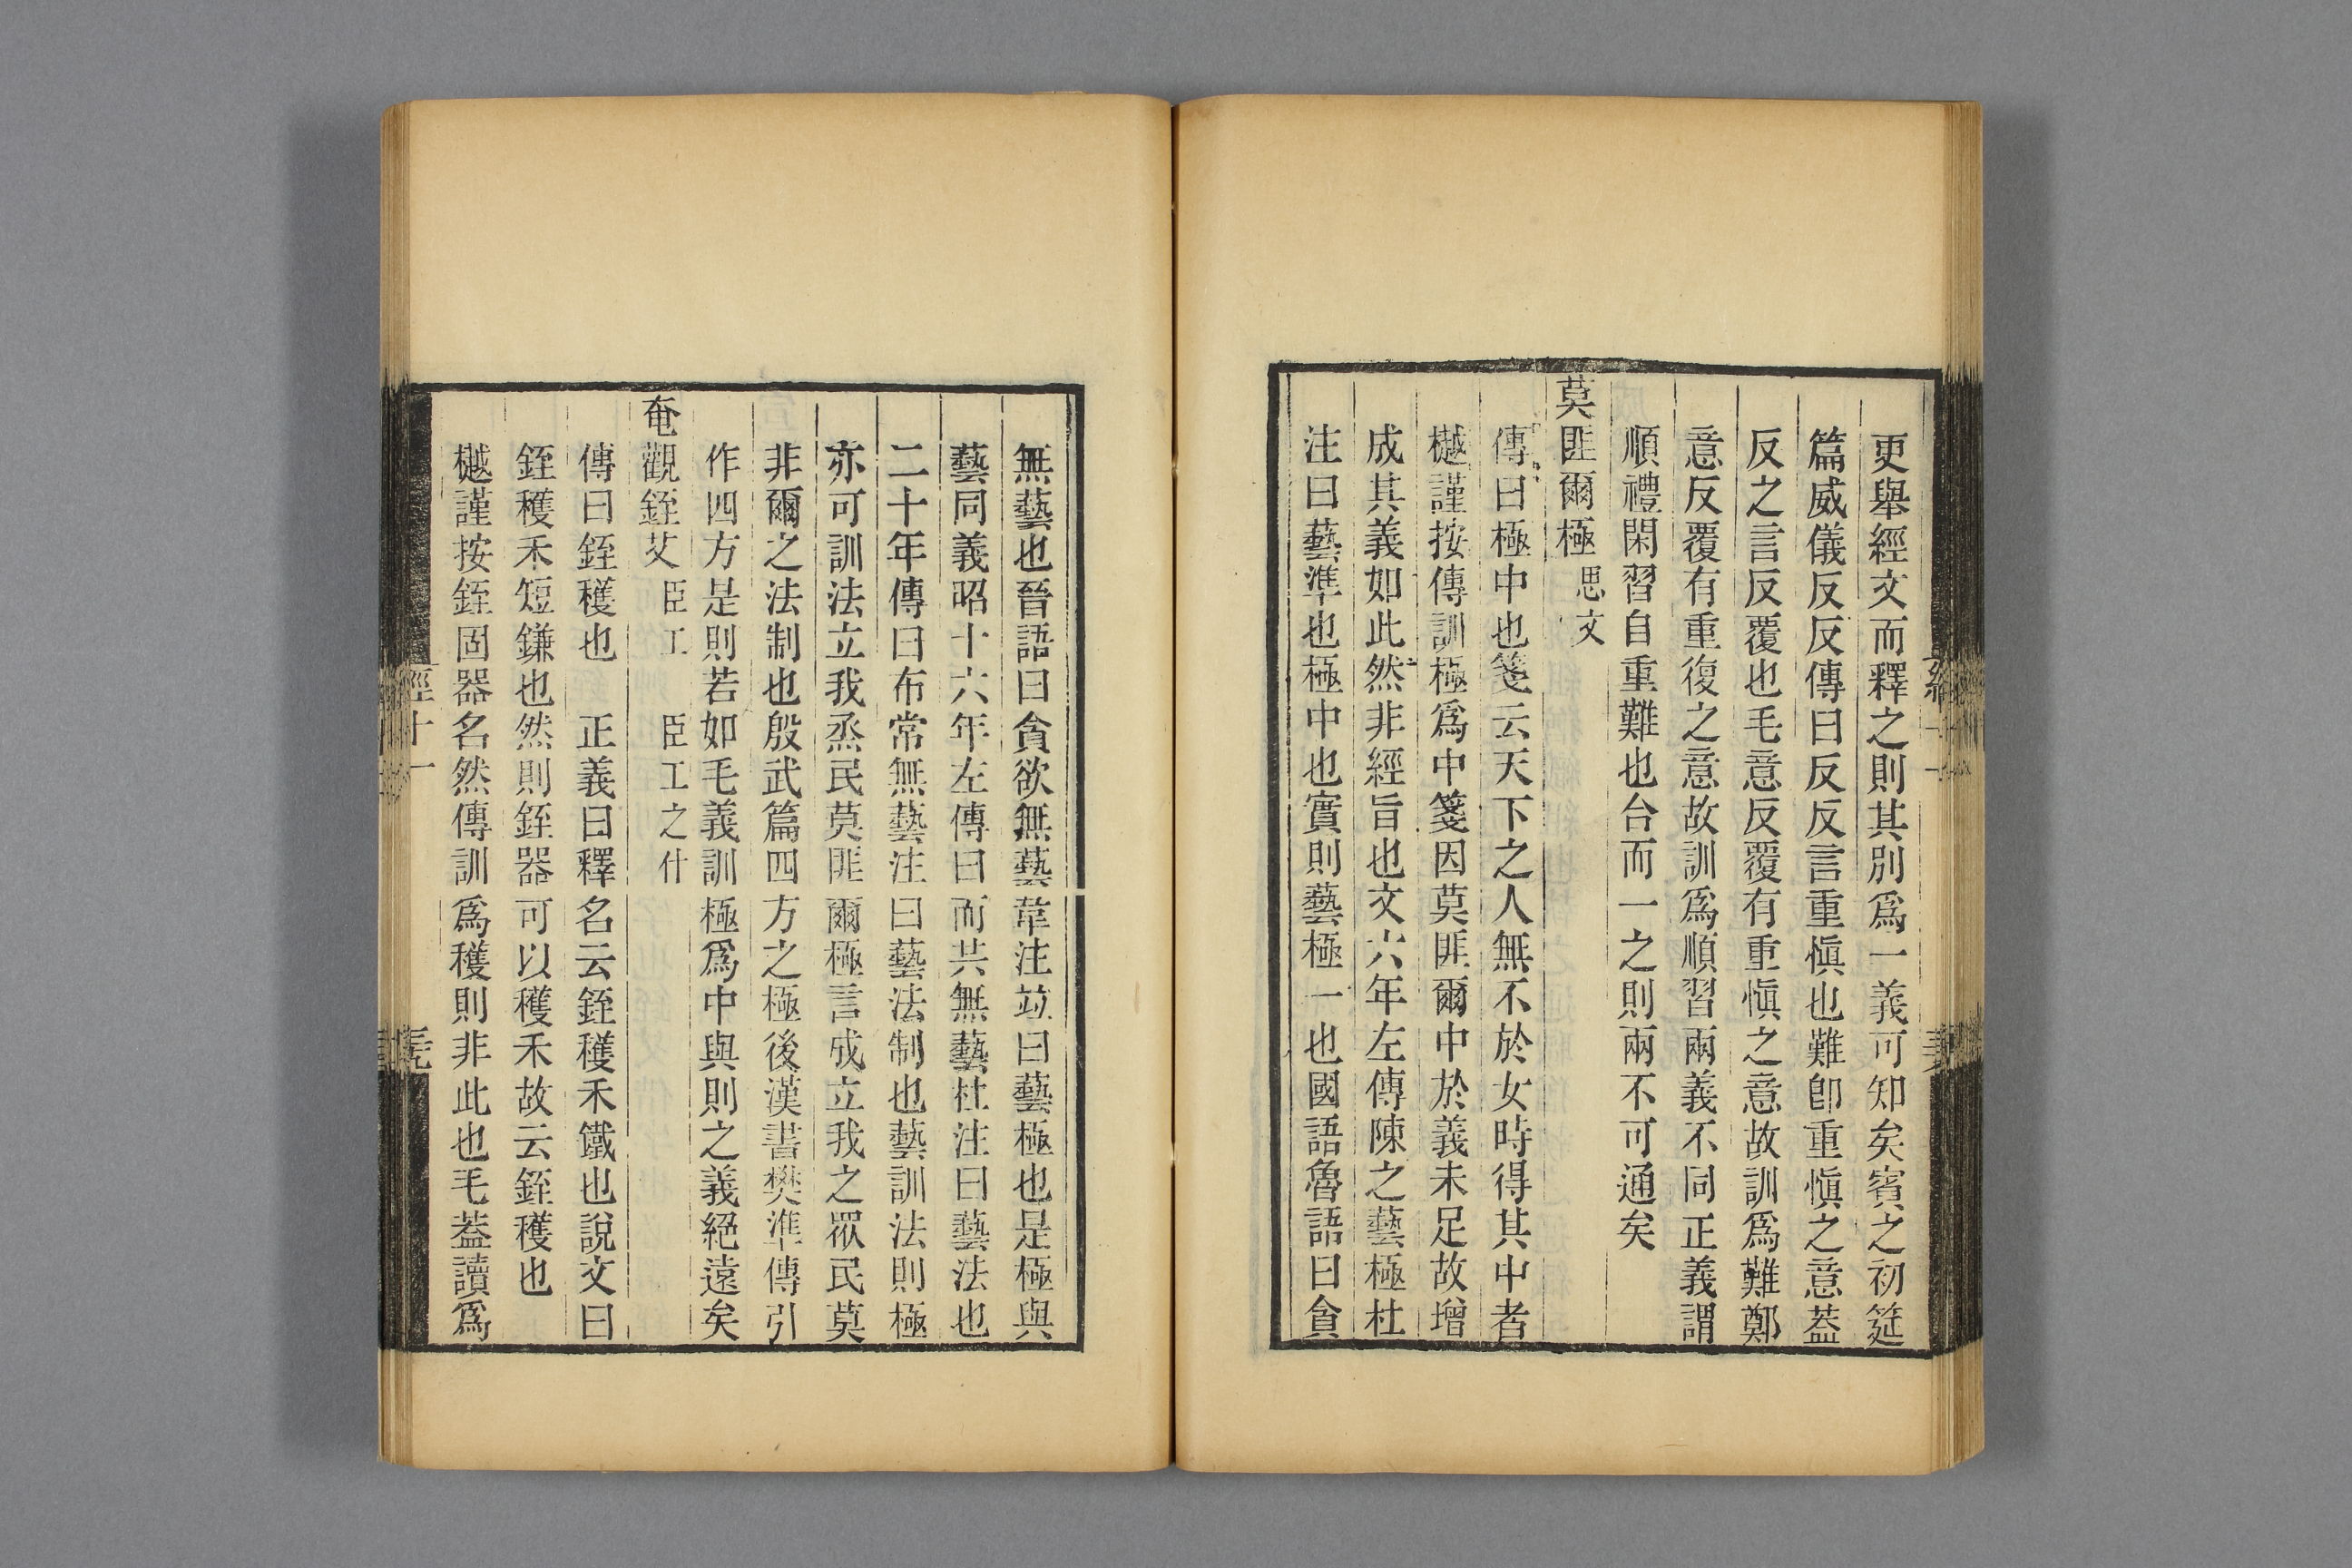 更舉經文而釋之則其別爲一義可知矣賓之初筵
篇威儀反反傳曰反反言重愼也難卽重愼之意葢
反之言反覆也毛意反覆有重愼之意故訓爲難鄭
意反覆有重復之意故訓爲順習兩義不同正義謂
順禮閑習自重難也合而一之則兩不可通矣
莫匪爾極 思文
傳曰極中也箋云天下之人無不於女時得其中者
樾謹按傳訓極爲中箋因莫匪爾中於義未足故增
成其義如此然非經旨也文六年左傳陳之藝極杜
注曰藝準也極中也實則藝極一也國語魯語曰貪
無藝也晉語曰貪欲無藝韋注竝曰藝極也是極與
藝同義昭十六年左傳曰而共無藝杜注曰藝法也
二十年傳曰布常無藝注曰藝法制也藝訓法則極
亦可訓法立我烝民莫匪爾極言成立我之眾民莫
非爾之法制也殷武篇四方之極後漢書樊準傳引
作四方是則若如毛義訓極爲中與則之義絕遠矣
奄觀銍艾 臣工 臣工之什
傳曰銍穫也 正義曰釋名云銍穫禾鐵也說文曰
銍穫禾短鎌也然則銍器可以穫禾故云銍穫也
樾謹按銍固器名然傳訓爲穫則非此也毛葢讀爲
經十一